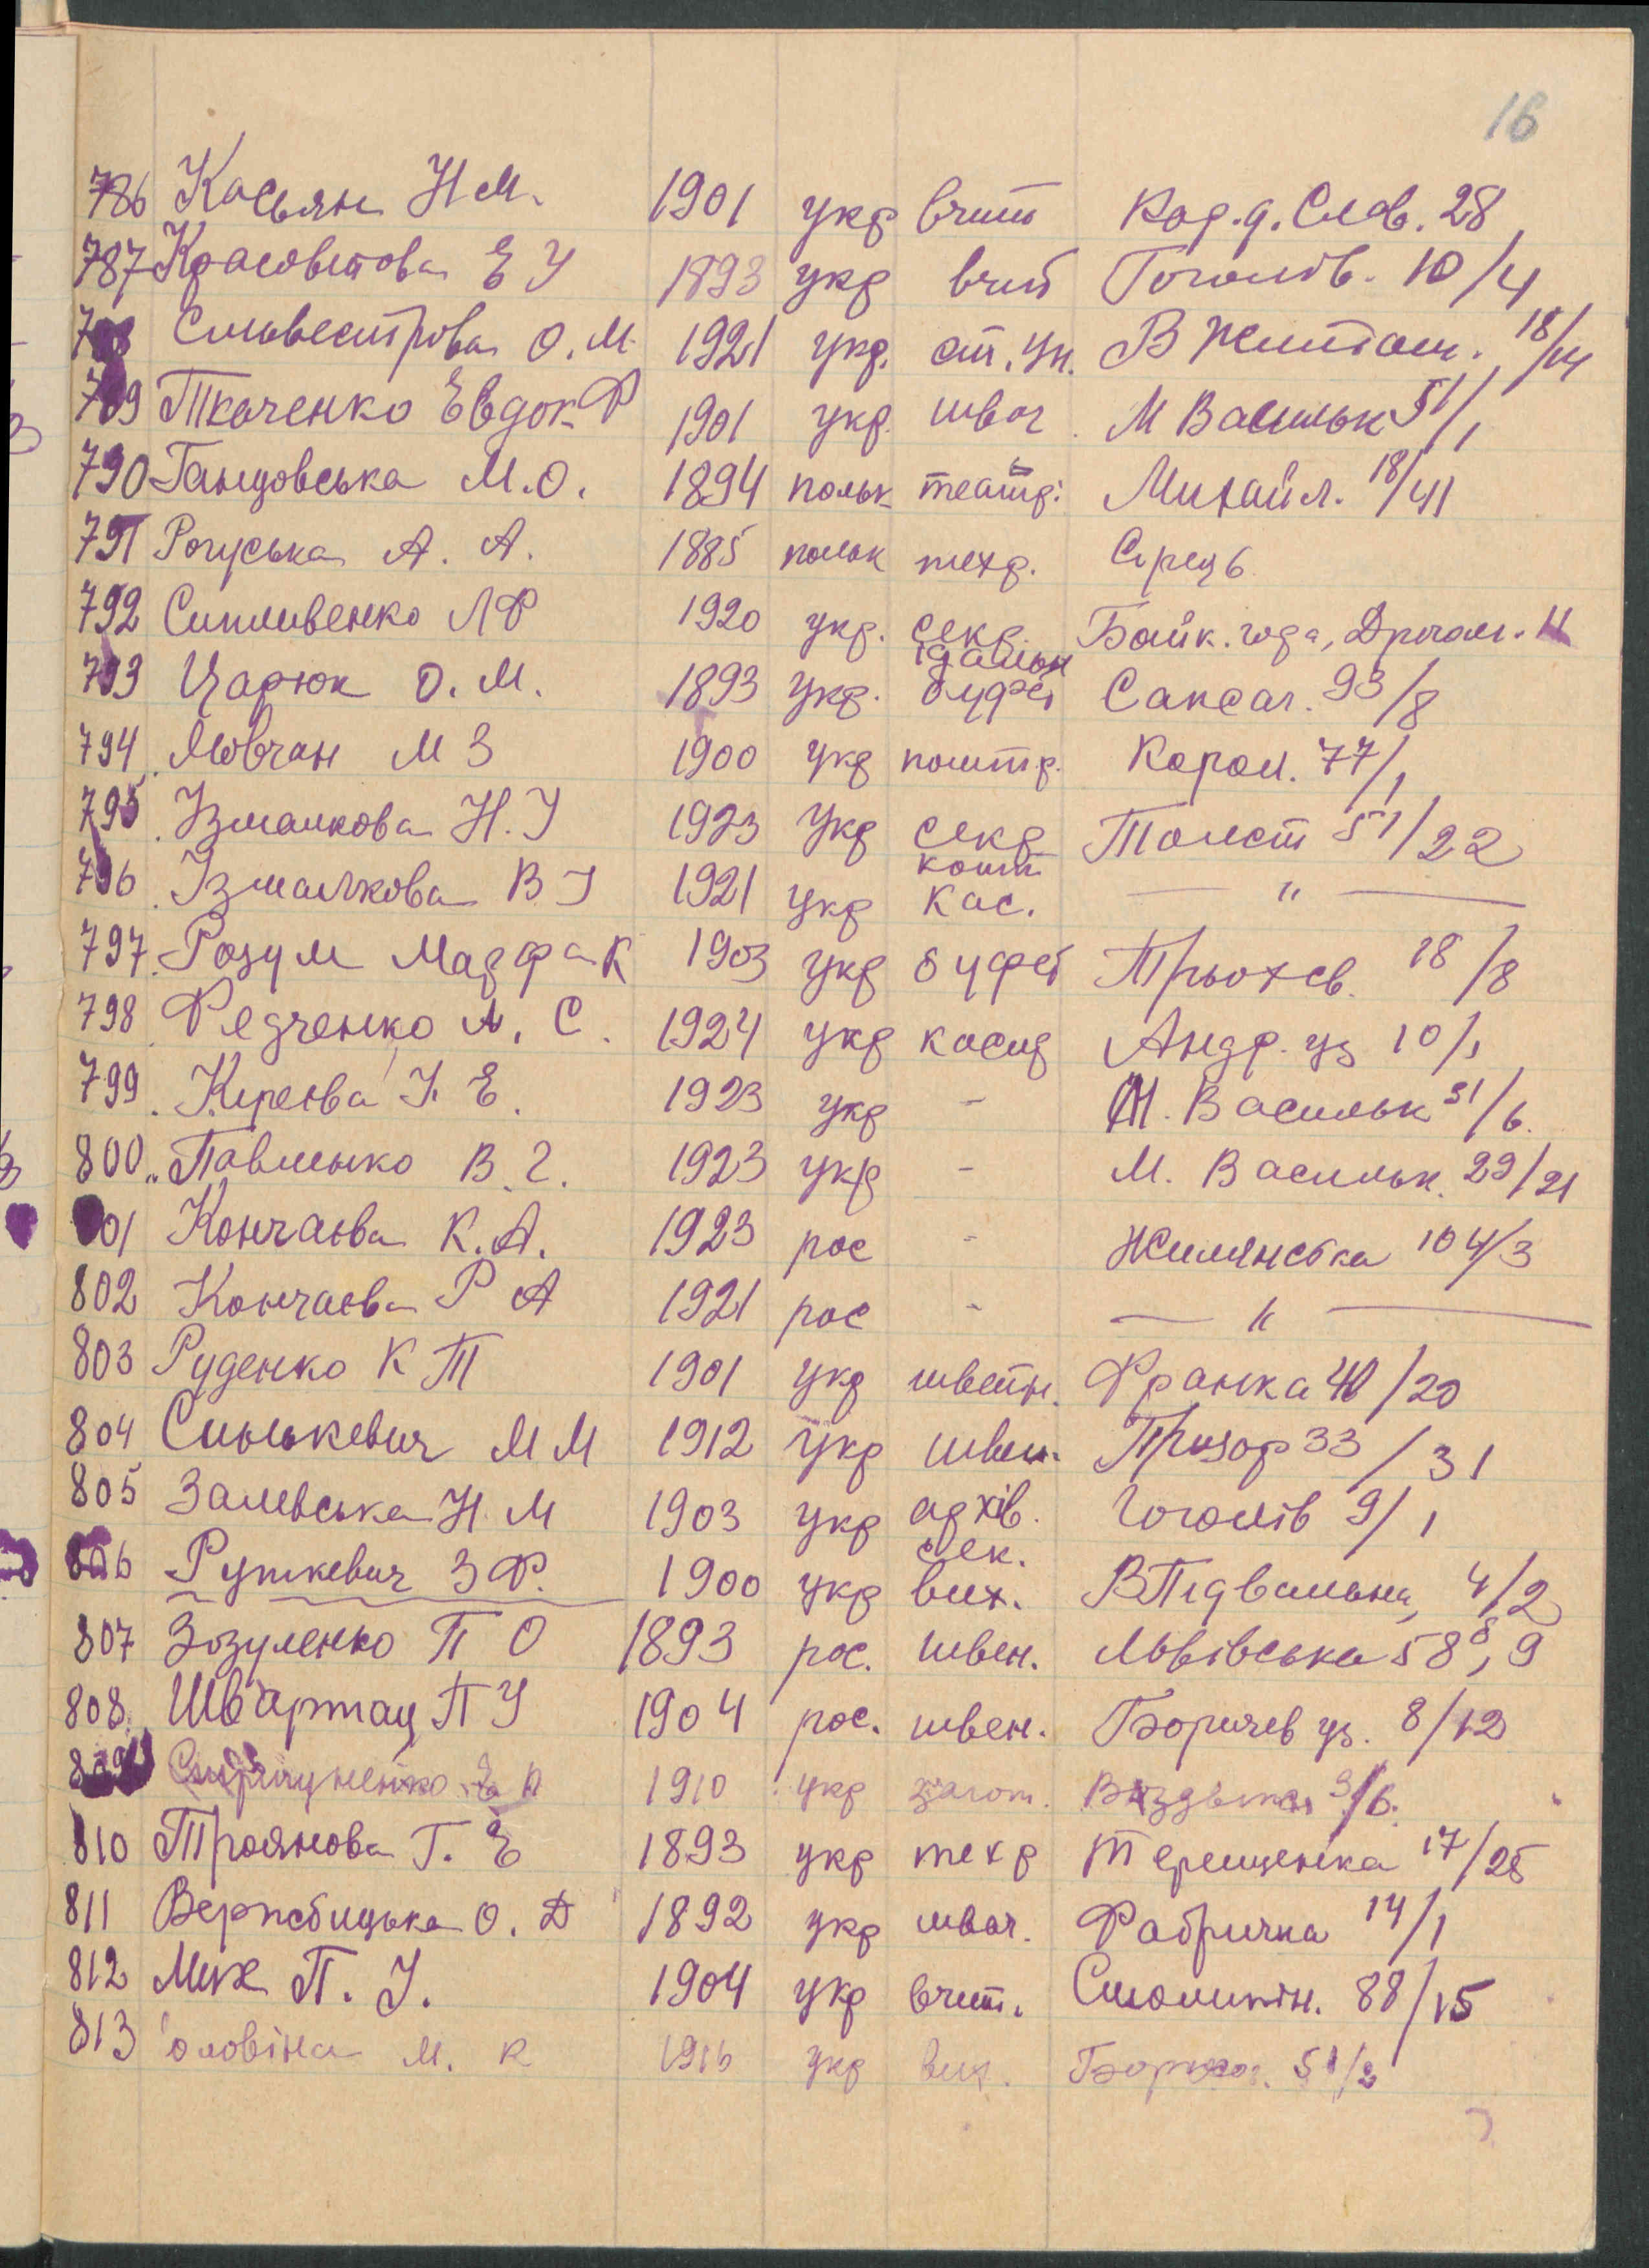 16
786 Касьян Н М. 1901 укр вчит Кад. д. Слов. 28
787 Красовитова Е У 1893 укр вчит Гоголів. 10/4
788 Сильвестрова О. М. 1921 укр. ст. ун. В Житом. 18/14
789 Ткаченко Евдок Ф 1901 укр. швач М Васильк 51/1
790 Ганцовська М. О. 1894 польк театр. Михайл. 18/41
791 Рогуська А. А. 1885 польк техр. Сирець
792 Силивенко Л Ф 1920 укр. секр. Байк. гора, 11
793 Царюк О. М. 1893 укр. їдальн буфет Саксаг. 93/8
794 Мовчан М З 1900 укр поштр. Карал. 77/1
795 Ізмалкова Н. І 1923 укр секр Толст 51/22
796 Ізмалкова В І 1921 укр конт кас. — " —
797 Розум Марфа К 1903 укр буфет Трьохсв. 18/8
798 Федченко А. С. 1924 укр касир Андр. уз 10/1
799 Кирєєва І. Е. 1923 укр - М. Васильк 51/6.
800 Павленко В. Г. 1923 укр - М. Васильк. 29/21
801 Кончаєва К. А. 1923 рос - Жилянська 104/3
802 Кончаєва Р А 1921 рос - — " —
803 Руденко К Т 1901 укр швейн. Франка 40/20
804 Синькевич М М 1912 укр швен. Прозор 33/31
805 Залевська Н. М 1903 укр архів. Гоголів 9/1
806 Руткевич З Ф. 1900 укр сек. вих. В Підвальна, 4/2
807 Зозуленко П О 1893 рос. швен. Львівська 58, 9
808. Швартац П У 1904 рос. швен. Боричев уз. 8/12
809 1910 укр загот. 3/6.
810 Троянова Г. Е 1893 укр техр Терещенка 17/25
811 Вержбицька О. Д 1892 укр швач. Фабрична 14/1
812 Мик П. І. 1904 укр вчит. 88/15
813 оловіна М. К 1916 укр 51/2